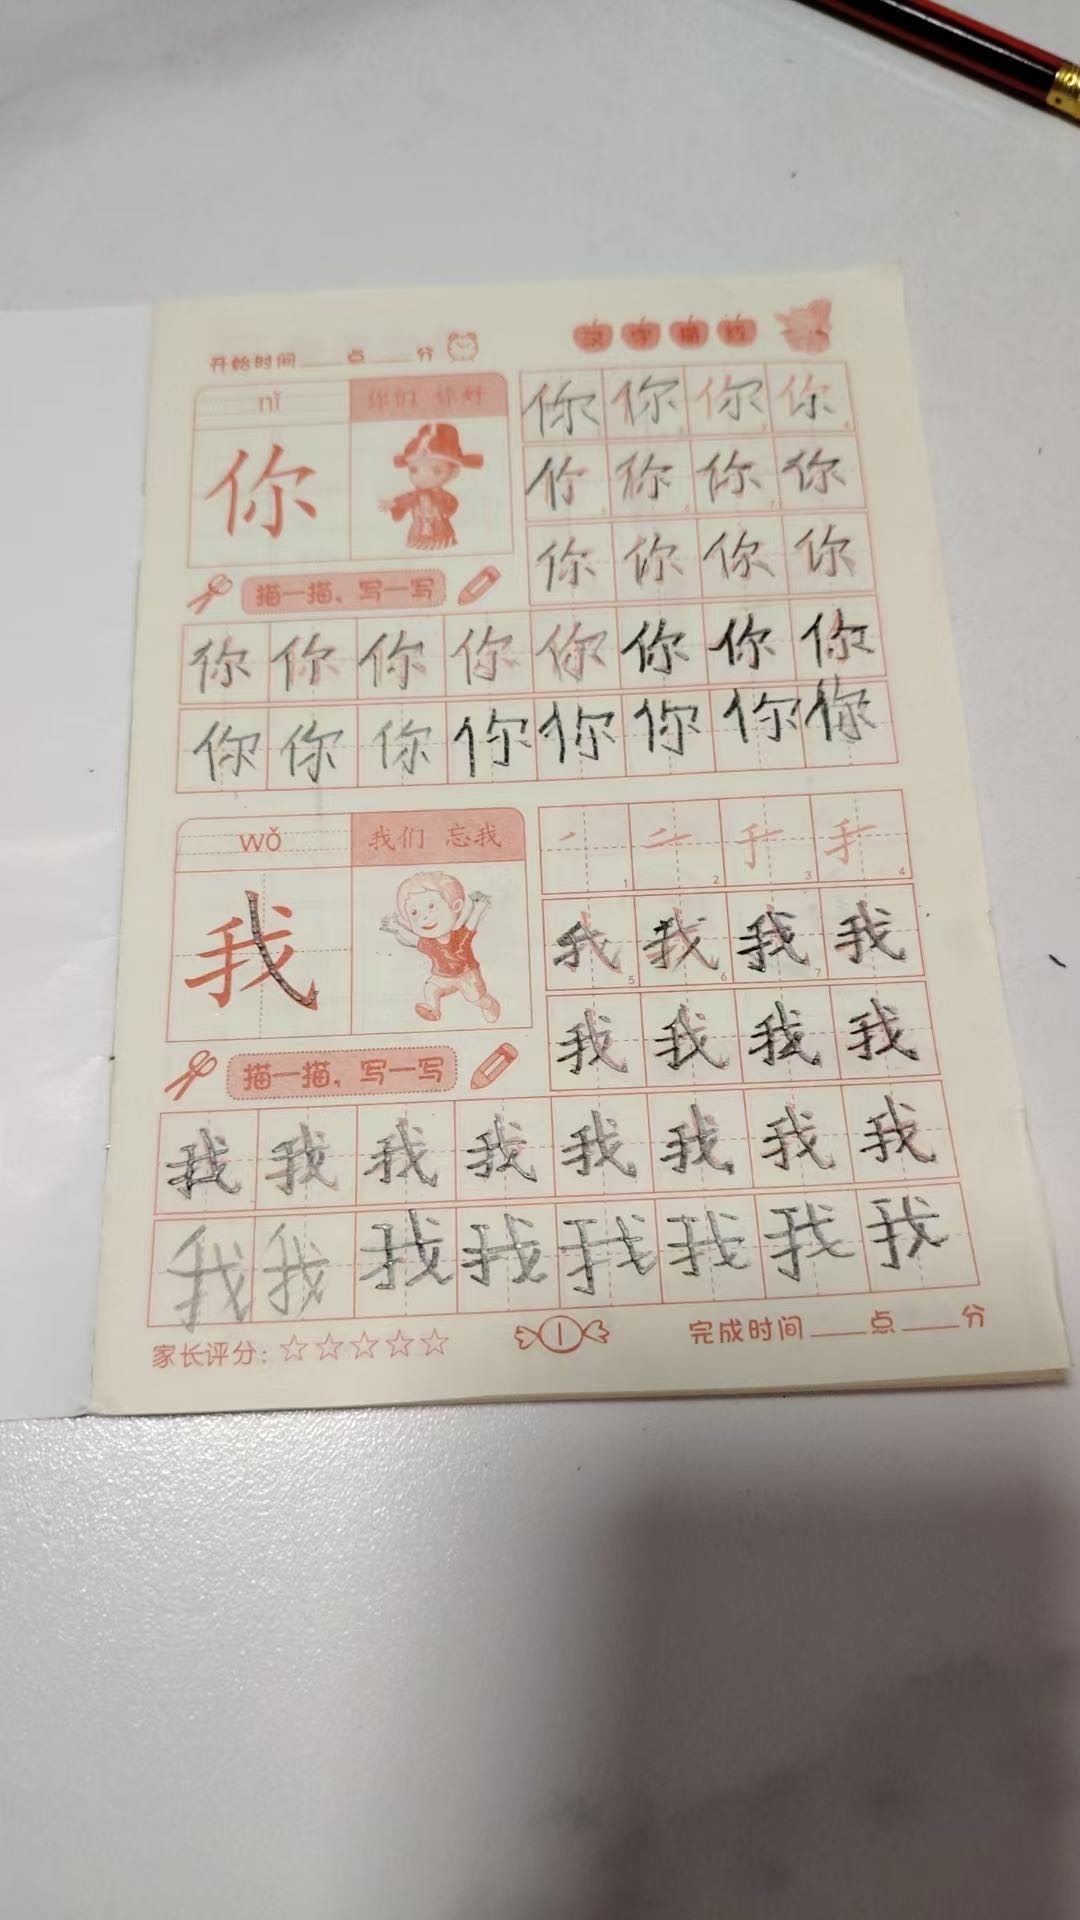 汉字描红
开始时间____点____分
nǐ
你们 你好
你
你你你你
你你你你
你你你你
描一描，写一写
你你你你你你你你
你你你你你你你你
wǒ
我们 忘我
我
1 2 3 4
我我我我
5 6 7
我我我我
描一描，写一写
我我我我我我我我
我我我我我我我我
家长评分：☆☆☆☆☆
1
完成时间____点____分